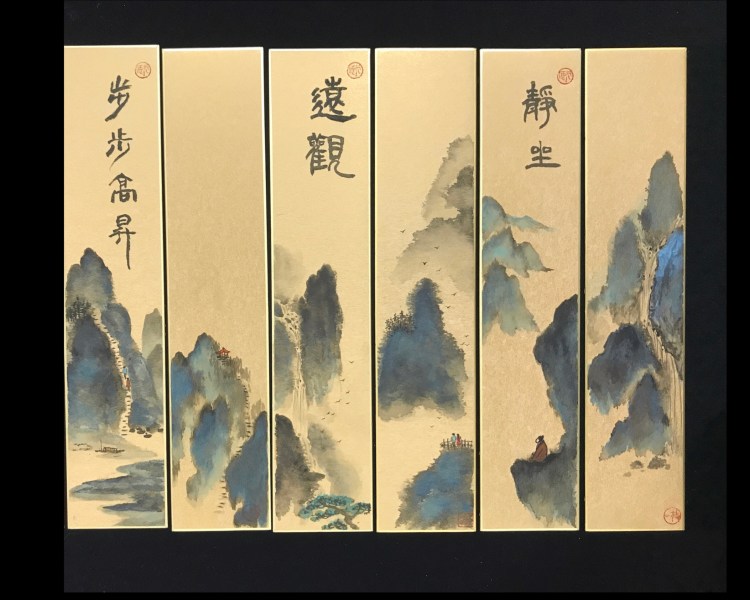 步步高昇
遠觀
靜坐